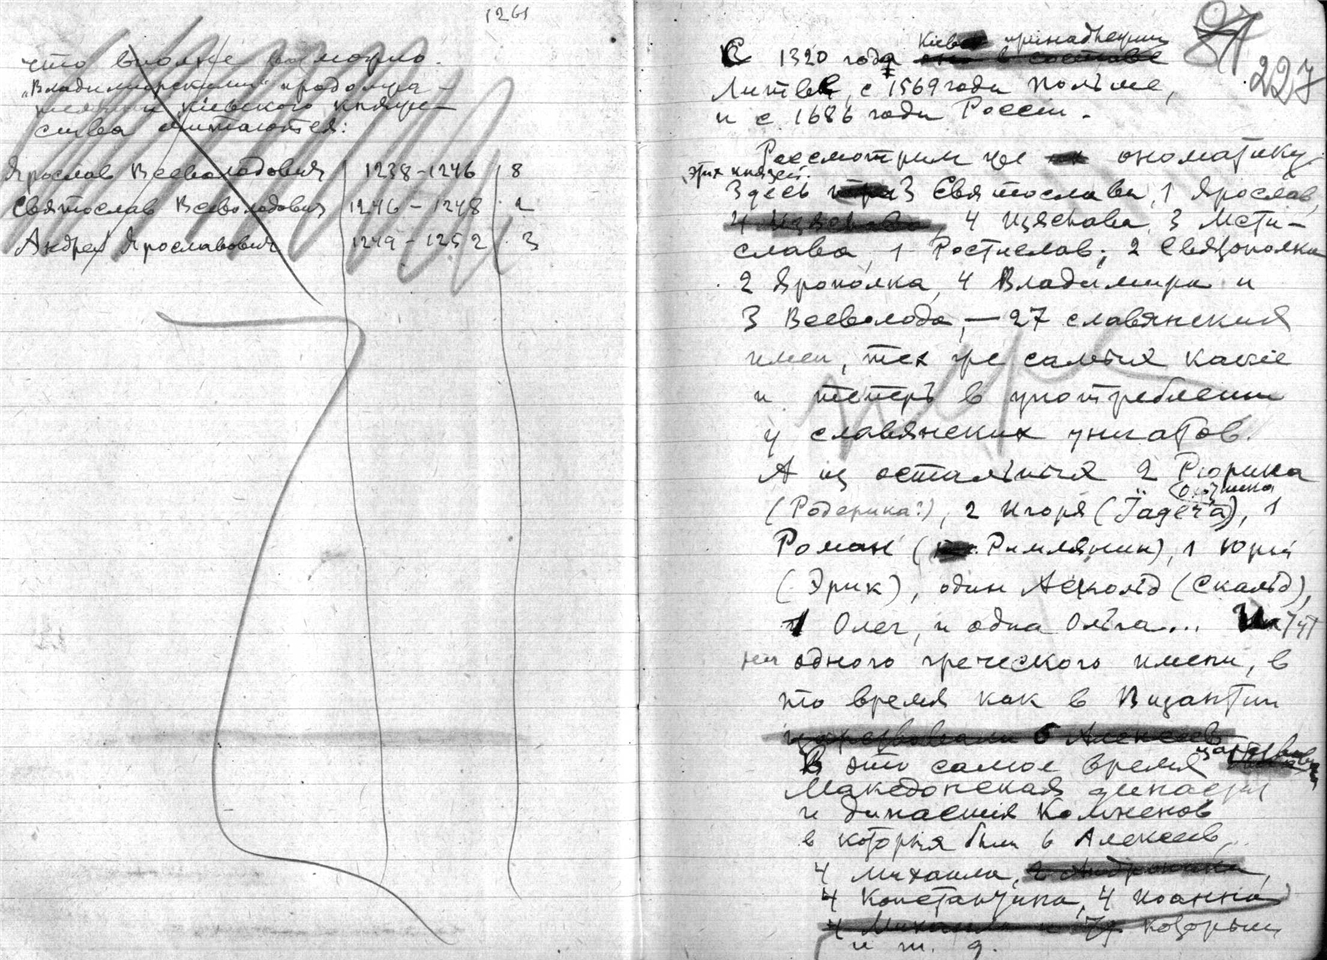 1261
что вполне возможно.
"Владимирскими" продолжа-
телями Киевского княже-
ства считаются:
Ярослав Всеволодович 1238-1246 8
Святослав Всеволодович 1246-1248 2
Андрей Ярославович 1249-1252 3
227
С 1320 года Киев принадлежит
Литве, с 1569 года Польше,
и с 1686 года России.
Рассмотрим же ономатику
этих князей.
Здесь 3 Святослава, 1 Ярослав,
4 Изяслава, 3 Мсти-
слава, 1 Ростислав, 2 Святополка
2 Ярополка, 4 Владимира и
3 Всеволода, — 27 славянских
имен, тех же самых какие
и теперь в употреблении
у славянских униатов.
А из остальных 2 Рюрика
(Родерика?), 2 Игоря (), 1
Роман (Римлянин), 1 Юрий
(Эрик), один Аскольд (Скальд),
1 Олег, и одна Ольга... тут
ни одного греческого имени, в
то время как в Византии
царствовали 6 Алексеев
В это самое время
Македонская династия
и династия Комненов
в которых были 6 Алексеев,
4 Михаила, 2 Андроника,
4 Константина, 4 Иоанна
4 Михаила и
и т. д.